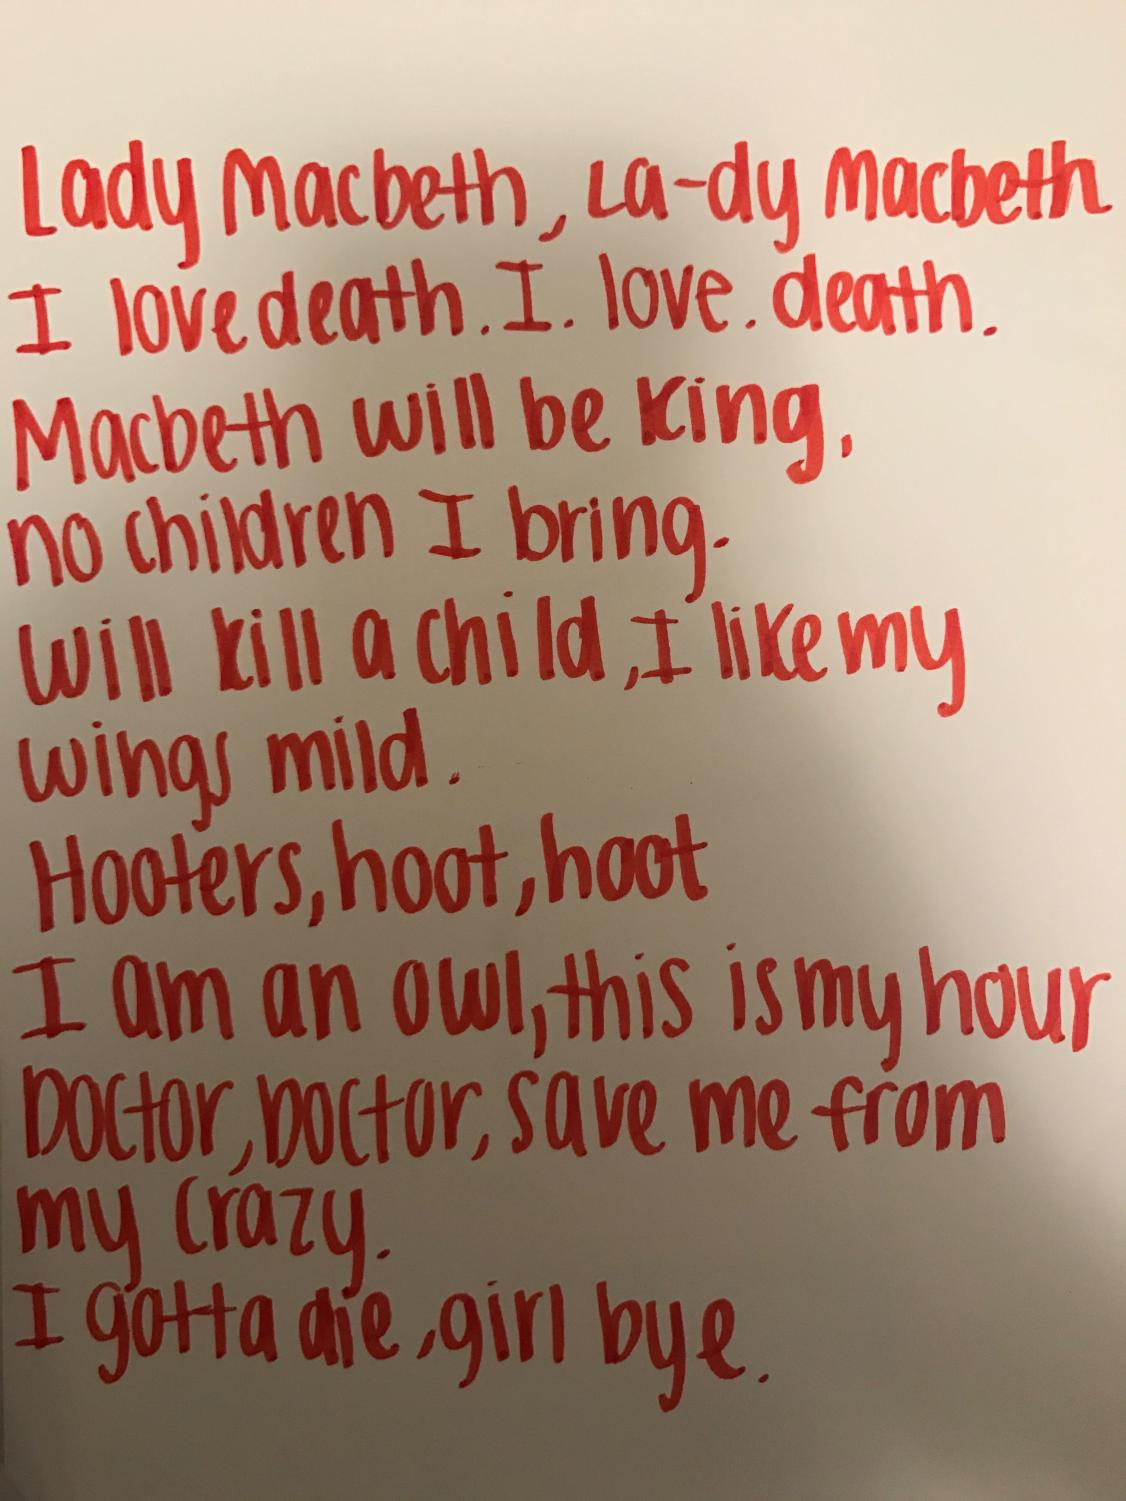 Lady Macbeth, La-dy Macbeth
I love death. I. love. death.
Macbeth will be King,
no children I bring.
Will kill a child, I like my
wings mild.
Hooters, hoot, hoot
I am an owl, this is my hour
Doctor, Doctor, save me from
my crazy.
I gotta die, girl bye.